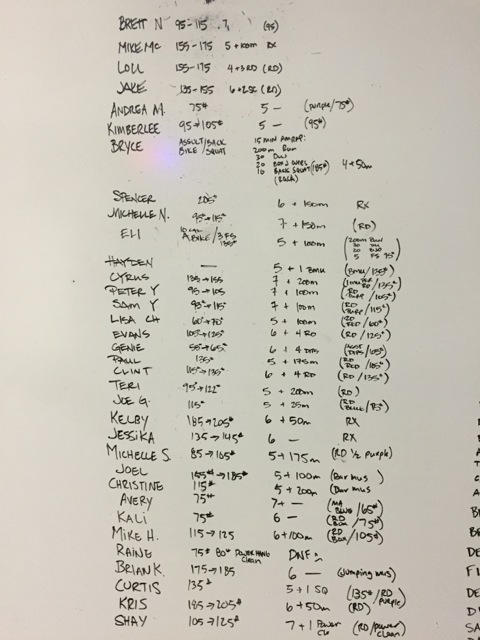 BRETT N 95-115 7 (95)
MIKE MC 155-175 5+100m RX
LOU 155-175 4+3RD (RD)
JAKE 135-155 (RD)
ANDREA M. 75# 5 - (purple/75#)
KIMBERLEE 95→105# 5 - (95#)
BRYCE ASSULT/BACK BIKE/SQUAT 15 MIN AMRAP:
200m Run
30 DU
20
10 BACK SQUAT (185#) 4+50m
SPENCER 205# 6 + 150m RX
MICHELLE N. 95→115# 7 + 150m (RD)
ELI 10 CAL A.BIKE/3 FS 155# 5 + 100m (200m Run
30 DU
20
5 FS 95#)
HAYDEN — 5 + 1 Bmu (Bmu/135#)
CYRUS 135→155 7 + 200m
PETER Y 95→105 7 + 100m (RD /105#)
SAM Y 95→115# 7 + 100m (RD /115#)
LISA CH 60→70# 5 + 100m (RD RED/60#)
EVANS 105→125# 6 + 4 RD (RD/125#)
GENIE 55→65# 6 + 4
PAUL 135# 5 + 175m (RD RED/105#)
CLINT 115→135# 6 + 4 RD (RD/135#)
TERI 95→122# 5 + 200m (RD)
JOE G. 115# 5 + 25m (RD BLUE/95#)
KELBY 185→205# 6 + 50m RX
JESSIKA 135→145# 6 — RX
MICHELLE S. 85→105# 5+175m (RD 1/2 purple)
JOEL 155#→185# 5 + 100m (Bar mus)
CHRISTINE 115# 5 + 200m (Bar mus)
AVERY 75# 7+ — (BLUE/65#)
KALI 75# 6 — (RD BOX/75#)
MIKE H. 115→125 6+100m (RD BOX/105#)
RAINE 75# 80# POWER HANG Clean DNF
BRIAN K. 175→185 6 — (Jumping mus)
CURTIS 135# 5 + 1 SQ (135#/RD purple)
KRIS 185→205# 6 + 50m (RD)
SHAY 105→125# 7 + 1 Power Cl (RD/power clean)